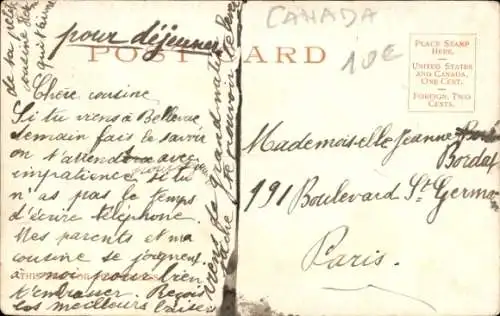 CANADA
10€
POST CARD
PLACE STAMP
HERE.
UNITED STATES
AND CANADA,
ONE CENT.
FOREIGN, TWO
CENTS.
pour déjeuner
Chère cousine
Si tu viens à Bellevue
demain fais le savoir
on t'attend avec
impatience. Si tu
n'as pas le temps
d'écrire téléphone.
Mes parents et ma
cousine se joignent
à moi pour bien
t'embrasser. Reçois
les meilleurs baisers
de ta
cousine
qui t'aime
viens de grand matin
Mademoiselle Jeanne
Bordas
191 Boulevard St Germain
Paris.